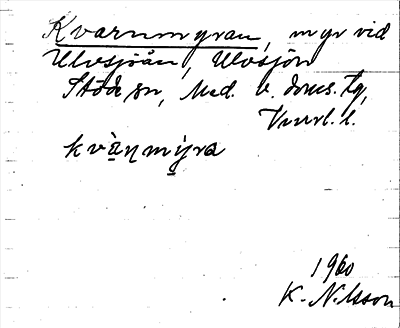 Kvarnmyran, myr vid
Ulvsjöån, Ulvsjön
Stöde sn, Med. v. doms. tg,
l.
kvàṇmýra
1960
K. Nilsson